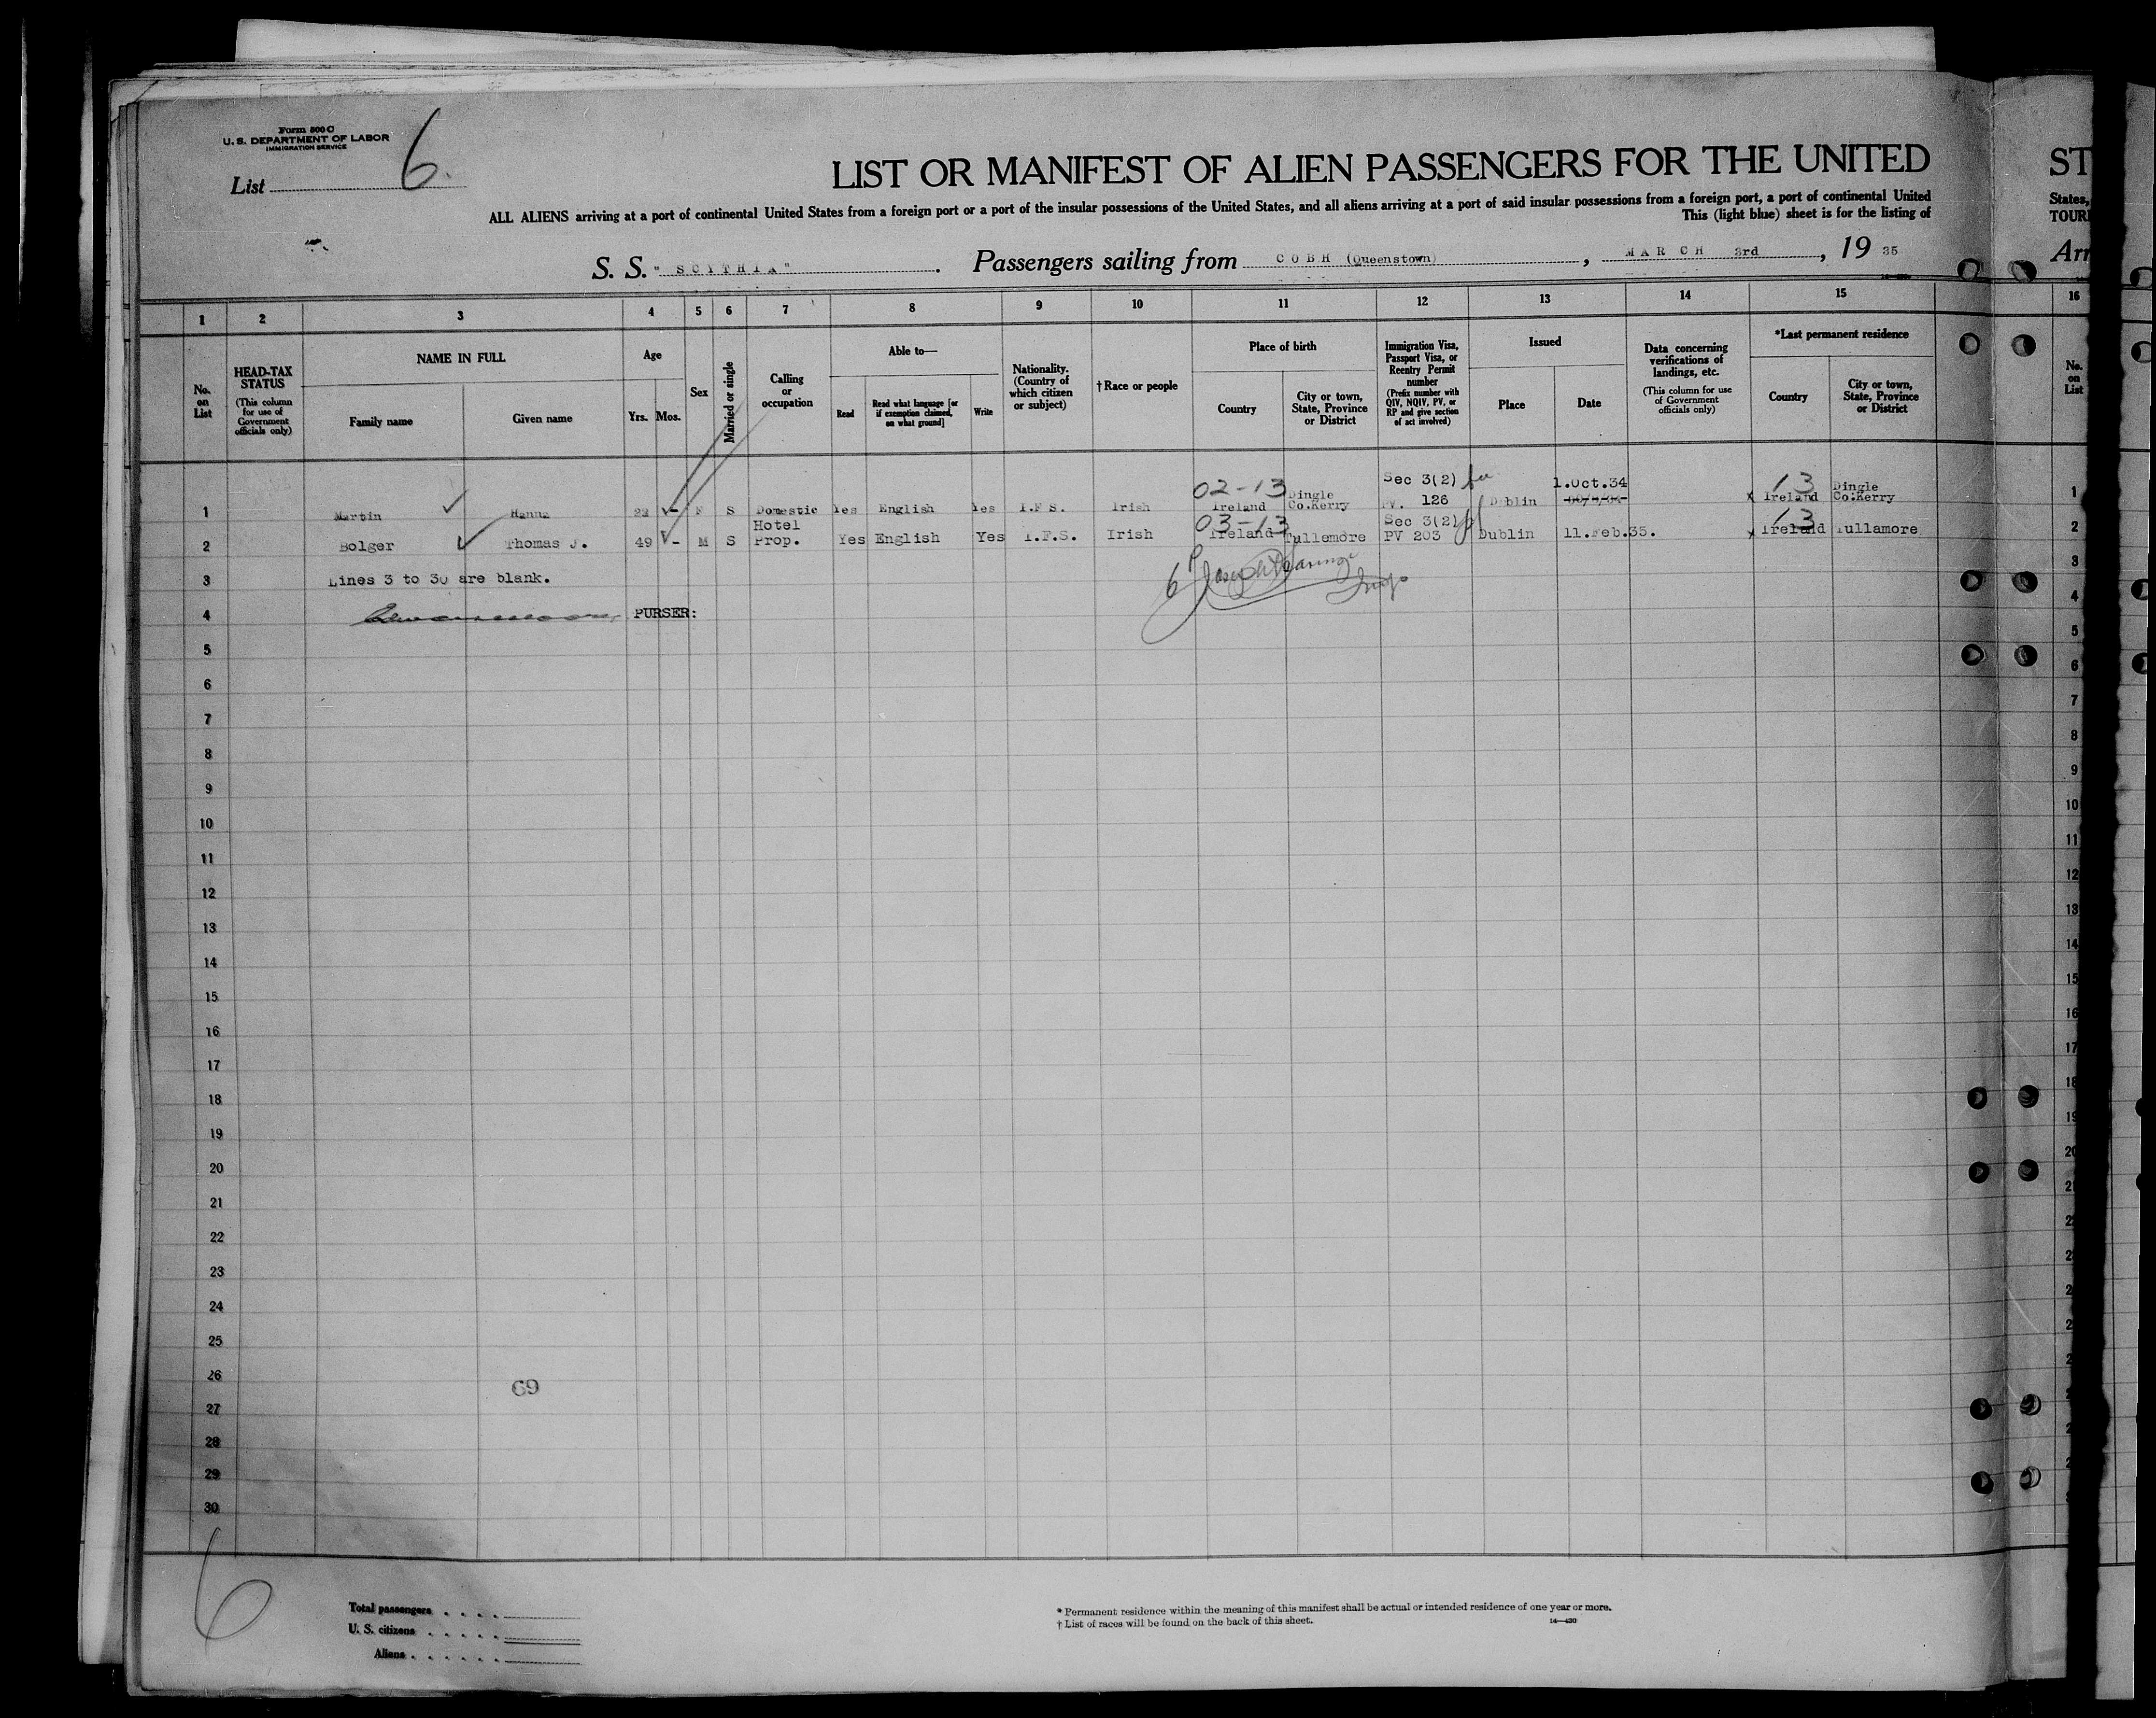 Form 500 C
U. S. DEPARTMENT OF LABOR
IMMIGRATION SERVICE
List 6.
LIST OR MANIFEST OF ALIEN PASSENGERS FOR THE UNITED
ST
ALL ALIENS arriving at a port of continental United States from a foreign port or a port of the insular possessions of the United States, and all aliens arriving at a port of said insular possessions from a foreign port, a port of continental United
States,
This (light blue) sheet is for the listing of
TOUR
S. S. "SCYTHIA". Passengers sailing from COBH (Queenstown), MARCH 3rd, 19 35
Arr
1 2 3 4 5 6 7 8 9 10 11 12 13 14 15 16
No. on List
HEAD-TAX STATUS
(This column for use of Government officials only)
NAME IN FULL
Family name
Given name
Age
Yrs. Mos.
Sex
Married or single
Calling or occupation
Able to—
Read
Read what language [or if exemption claimed, on what ground]
Write
Nationality. (Country of which citizen or subject)
† Race or people
Place of birth
Country
City or town, State, Province or District
Immigration Visa, Passport Visa, or Reentry Permit number
(Prefix number with QIV, NQIV, PV, or RP and give section of act involved)
Issued
Place
Date
Data concerning verifications of landings, etc.
(This column for use of Government officials only)
*Last permanent residence
Country
City or town, State, Province or District
No. on List
1 Martin Hanna 22 - F S Domestic Yes English Yes I.F.S. Irish 02-13 Ireland Dingle Co.Kerry Sec 3(2) PV. 126 Dublin 1.Oct.34 x 13 Ireland Dingle Co.Kerry 1
2 Bolger Thomas J. 49 - M S Hotel Prop. Yes English Yes I.F.S. Irish 03-13 Ireland Tullamore Sec 3(2) PV 203 Dublin 11.Feb.35. x 13 Ireland Tullamore 2
3 Lines 3 to 30 are blank. 3
6
4 PURSER: 4
5 5
6 6
7 7
8 8
9 9
10 10
11 11
12 12
13 13
14 14
15 15
16 16
17 17
18 18
19 19
20 20
21
22
23
24
25
26
69
27
28
29
30
6
Total passengers
U. S. citizens
Aliens
* Permanent residence within the meaning of this manifest shall be actual or intended residence of one year or more.
† List of races will be found on the back of this sheet.
14—420